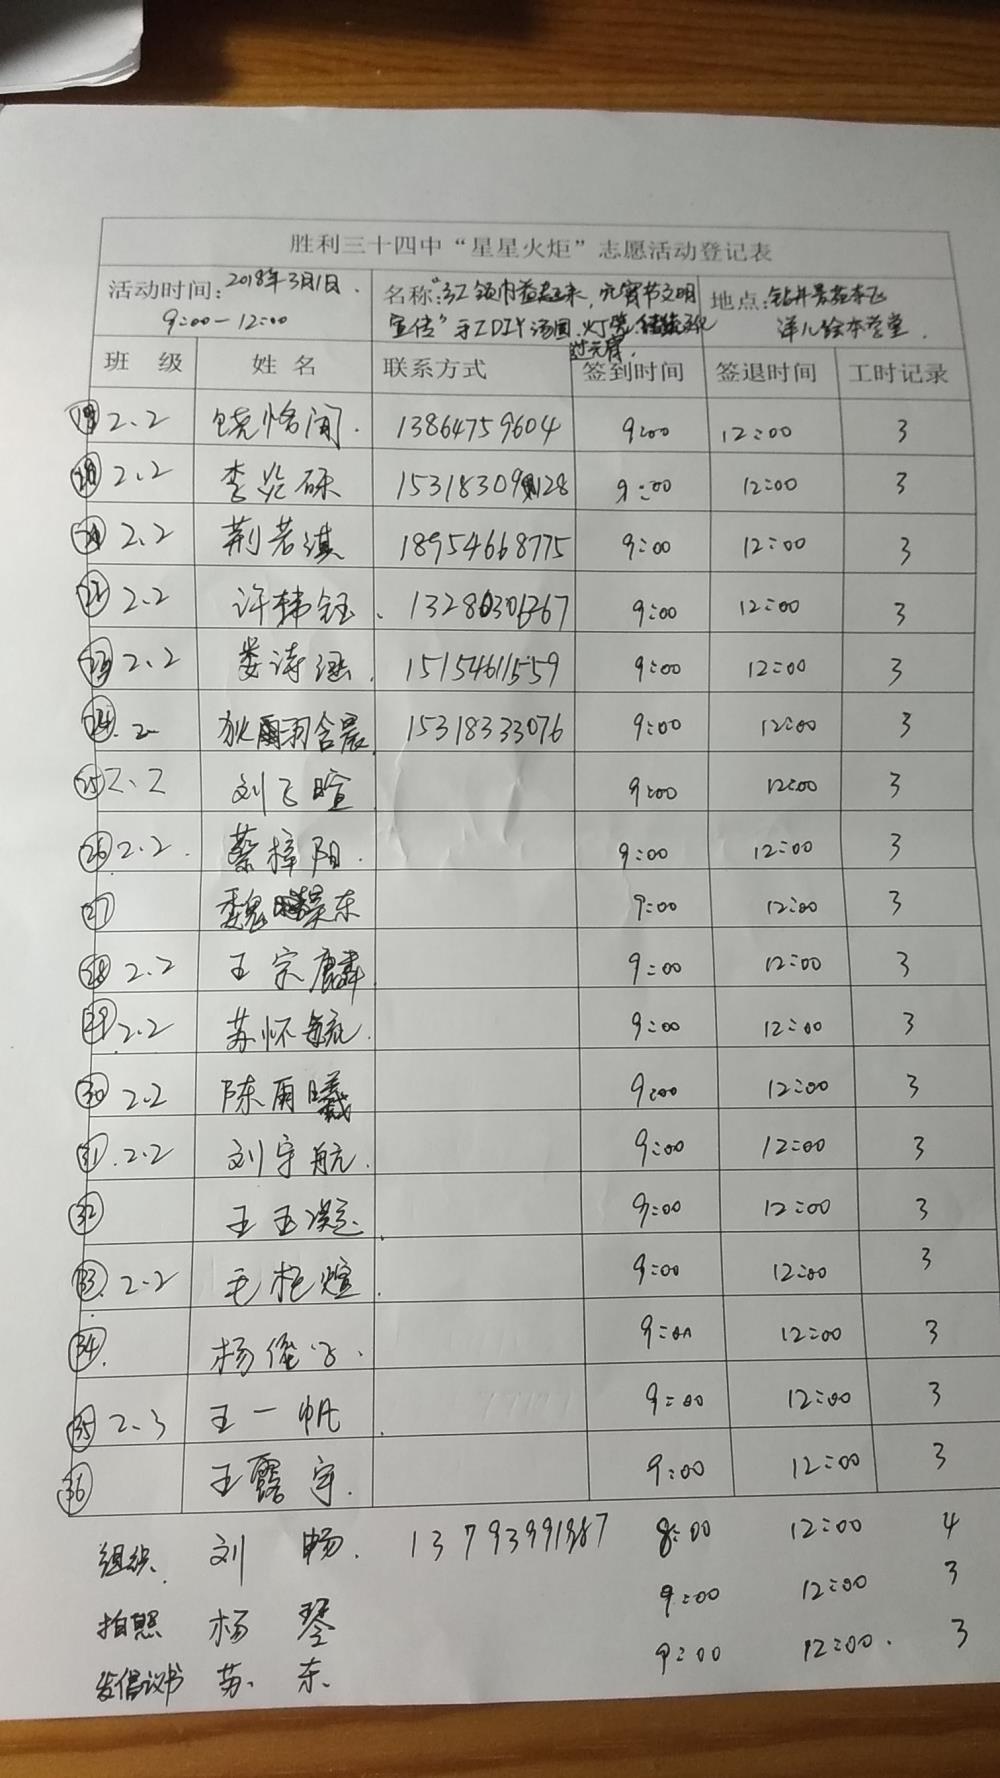 胜利三十四中“星星火炬”志愿活动登记表
活动时间：2018年3月1日. 名称：“红领巾益起来 元宵节文明 地点：钻井
9:00—12:00 宣传”手工DIY汤圆.灯笼 洋儿绘本学堂.
过元宵.
班 级 姓 名 联系方式 签到时间 签退时间 工时记录
⑲ 2.2 饶恰闻. 13864759604 9:00 12:00 3
⑳ 2.2 李炎砾 9:00 12:00 3
2.2 荆若淇 18954668775 9:00 12:00 3
㉒ 2.2 许韩钰. 9:00 12:00 3
㉓ 2.2 娄诗涵. 15154611559 9:00 12:00 3
㉔. 2 狄雨羽含晨 15318333076 9:00 12:00 3
㉕ 2.2 刘飞暄 9:00 12:00 3
㉖ 2.2. 蔡梓阳. 9:00 12:00 3
㉗ 魏昊东 9:00 12:00 3
㉘ 2.2 王宗麟 9:00 12:00 3
㉙ 2.2 苏怀毓. 9:00 12:00 3
㉚ 2.2 陈雨曦 9:00 12:00 3
㉛. 2.2 刘宇航. 9:00 12:00 3
㉜ 王玉 9:00 12:00 3
㉝. 2.2 毛煊. 9:00 12:00 3
㉞. 杨俊. 9:00 12:00 3
㉟ 2.3 王一帆 9:00 12:00 3
㊱ 王露宇. 9:00 12:00 3
组织. 刘 畅. 8:00 12:00 4
拍照 杨 琴 9:00 12:00 3
发倡议书 苏 东. 9:00 12:00. 3